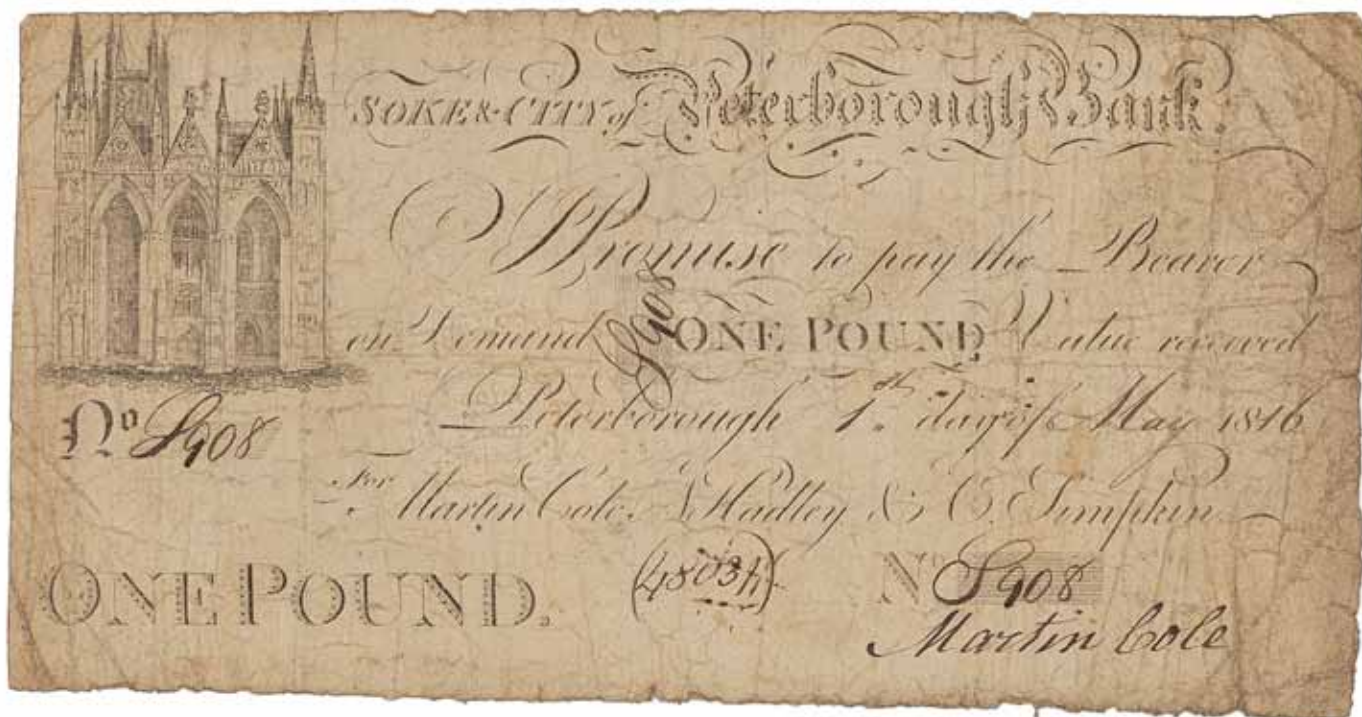 SOKE & CITY of Peterborough Bank.
I Promise to pay the Bearer
on Demand ONE POUND Value received
Peterborough 1st day of May 1816
No S908
S908
For Martin Cole, Hadley & C. Simpkin
ONE POUND.
(48034)
No S908
Martin Cole